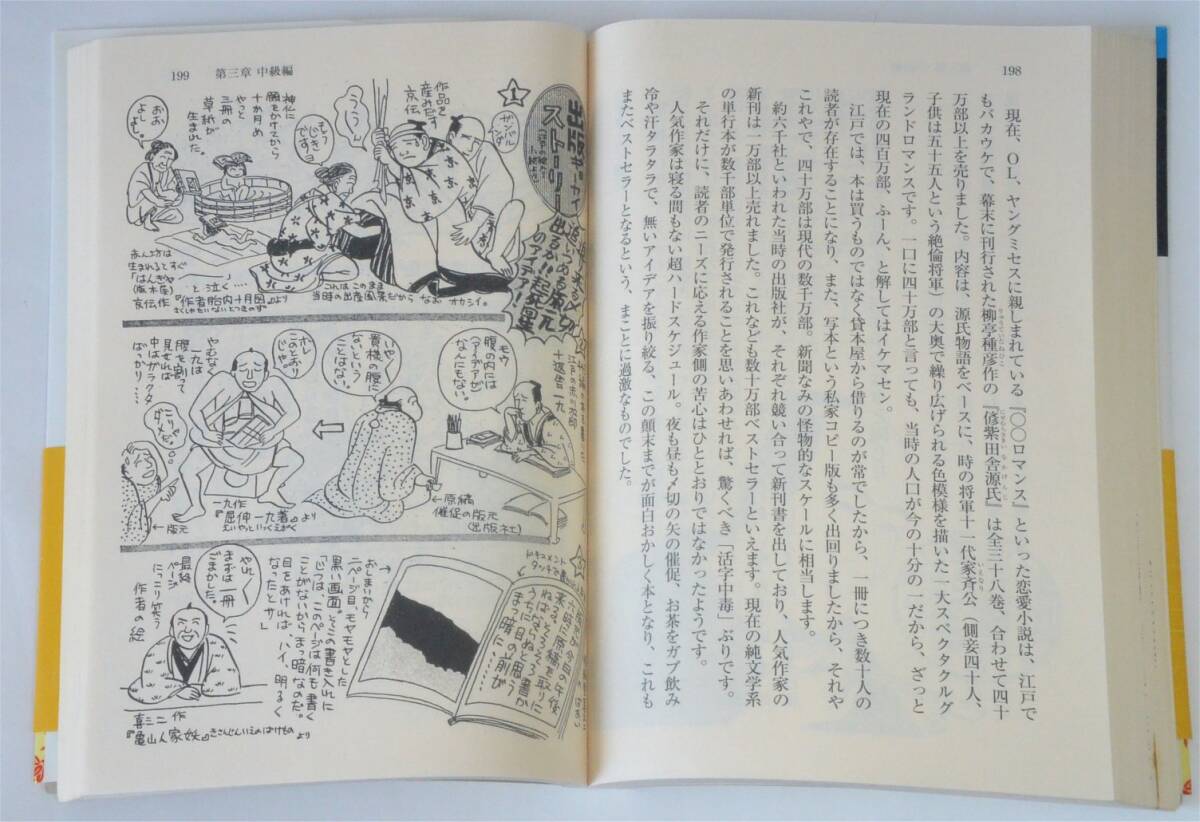 198
現在、OL、ヤングミセスに親しまれている『〇〇ロマンス』といった恋愛小説は、江戸で
もバカウケで、幕末に刊行された柳亭種彦作の『偐紫田舎源氏』は全三十八巻、合わせて四十
万部以上を売りました。内容は、源氏物語をベースに、時の将軍十一代家斉公(側妾四十人、
子供は五十五人という絶倫将軍)の大奥で繰り広げられる色模様を描いた一大スペクタクルグ
ランドロマンスです。一口に四十万部と言っても、当時の人口が今の十分の一だから、ざっと
現在の四百万部、ふーん、と解してはイケマセン。
江戸では、本は買うものではなく貸本屋から借りるのが常でしたから、一冊につき数十人の
読者が存在することになり、また、写本という私家コピー版も多く出回りましたから、それや
これやで、四十万部は現代の数千万部。新聞なみの怪物的なスケールに相当します。
約六千社といわれた当時の出版社が、それぞれ競い合って新刊書を出しており、人気作家の
新刊は一万部以上売れました。これなども数十万部ベストセラーといえます。現在の純文学系
の単行本が数千部単位で発行されることを思いあわせれば、驚くべき「活字中毒」ぶりです。
それだけに、読者のニーズに応える作家側の苦心はひととおりではなかったようです。
人気作家は寝る間もない超ハードスケジュール。夜も昼も〆切の矢の催促、お茶をガブ飲み
冷や汗タラタラで、無いアイデアを振り絞る、この顛末までが面白おかしく本となり、これも
またベストセラーとなるという、まことに過激なものでした。
199 第三章 中級編
出版ギョーカイ
ストーリー
出るか!!起死回生
のアイデア!
1
作品を
産みだす
京伝
ううーん
もう
じき
ですョ
神仏に
願をかけてから
十か月め
やっと
三冊の
草紙が
生まれた。
おお
よしよし。
赤ん坊は
生まれるとすぐ
「はんぎゃ
(版木屋)
と泣く…
京伝作『作者胎内十月図』より
さくしゃたいないとつきのず
これは このまま
当時の出産風景だから なお オカシイ。
十返舎一九
モウ
腹の内には
(アイデアが)
なんにも
ない。
いや
貴様の腹に
ないという
ことはない。
←原稿
催促の版元
(出版社)
ホレ
このとおり
じゃ。
やむなく
一九は
腹を割って
見せれば
中はガラクタ
ばっかり…
こりゃ
ダメだ。
←版元
一九作
『屈伸一九著』より
えいやっといっくえきべえ
ドキュメント
タッチで
おしまいから
二ページ目、モヤモヤとした
黒い画面。そこの書き入れに
「じつは、このページは何も書く
ことがないから、まっ暗なのだ。
目をあければ、ハイ、明るく
なったとサ」
やれ
まずは一冊
ごまかした。
最終
ページ
にっこり笑う
作者の絵
喜三二 作
『亀山人家妖』きさんじんいえのばけもの より